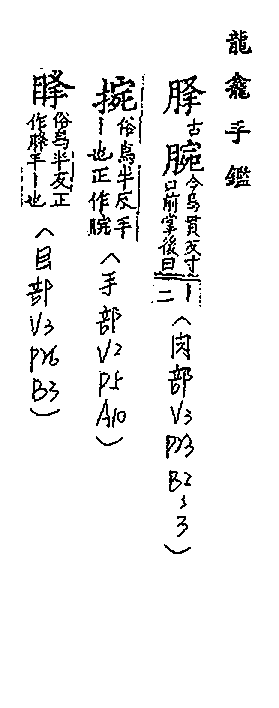 龍龕手鑑
古腕今烏貫反寸口前掌後曰丨二(肉部V3P23B2,3)
捥俗烏半反手丨也正作腕(手部V2P5A10)
俗烏半反正作手丨也(目部V3P26B3)